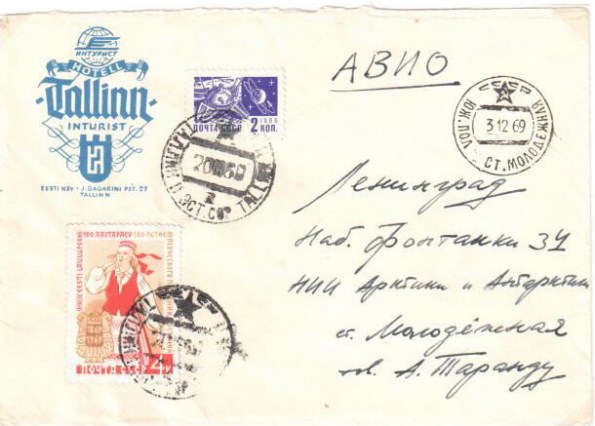 ИНТУРИСТ
HOTELL
Tallinn
INTURIST
EESTI NSV · J. GAGARINI PST. 27
TALLINN
АВИО
ПОЧТА СССР
1966
2 КОП.
ЭСТ. ССР TALLINN
СССР
ЮЖ. ПОЛ.
3 12 69
СТ. МОЛОДЕЖНАЯ
EESTI LAULUPIDU 100
ПОЧТА СССР
Ленинград
Наб. Фонтанки 34
НИИ Арктики и Антарктики
ст. Молодёжная
тов. А. Таранду